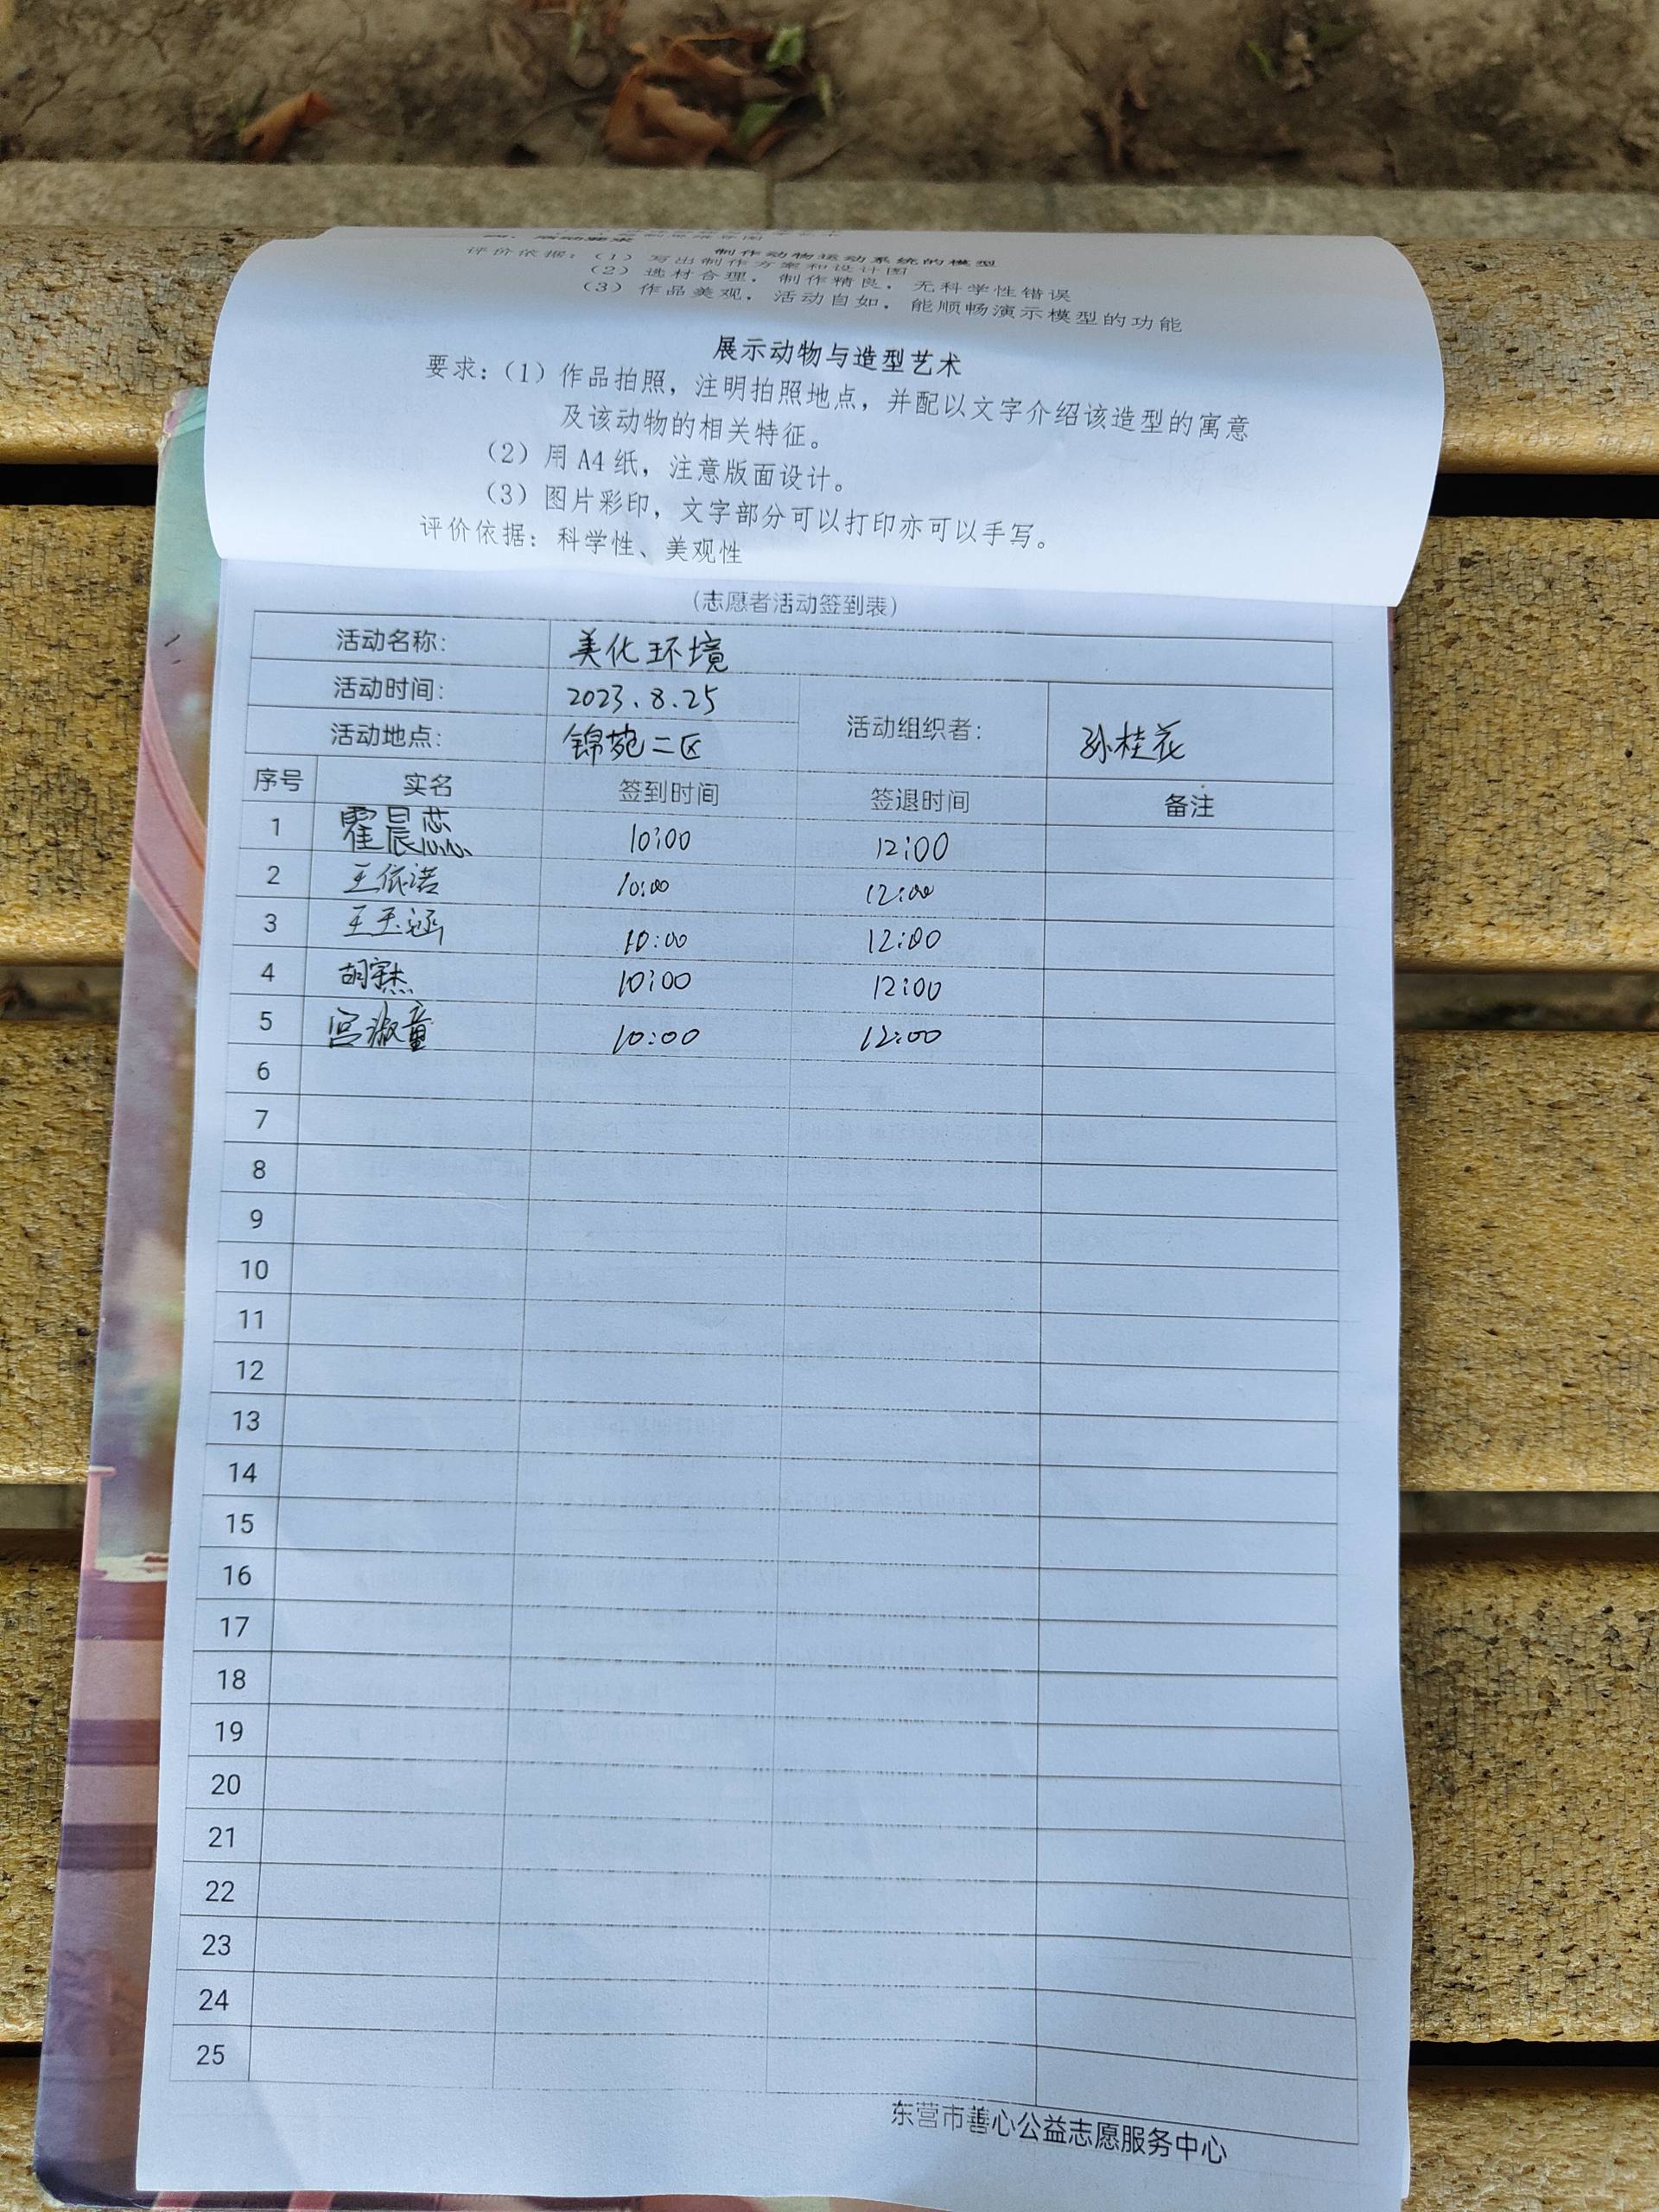 四、活动要求
制作动物运动系统的模型
评价依据：（1）写出制作方案和设计图
（2）选材合理，制作精良，无科学性错误
（3）作品美观，活动自如，能顺畅演示模型的功能
展示动物与造型艺术
要求：（1）作品拍照，注明拍照地点，并配以文字介绍该造型的寓意
及该动物的相关特征。
（2）用A4纸，注意版面设计。
（3）图片彩印，文字部分可以打印亦可以手写。
评价依据：科学性、美观性
（志愿者活动签到表）
活动名称： 美化环境
活动时间： 2023.8.25
活动组织者： 孙桂花
活动地点： 锦苑二区
序号 实名 签到时间 签退时间 备注
1 霍晨芯 10:00 12:00
2 王依诺 10:00 12:00
3 王玉涵 10:00 12:00
4 胡宇杰 10:00 12:00
5 宫淑童 10:00 12:00
6
7
8
9
10
11
12
13
14
15
16
17
18
19
20
21
22
23
24
25
东营市善心公益志愿服务中心